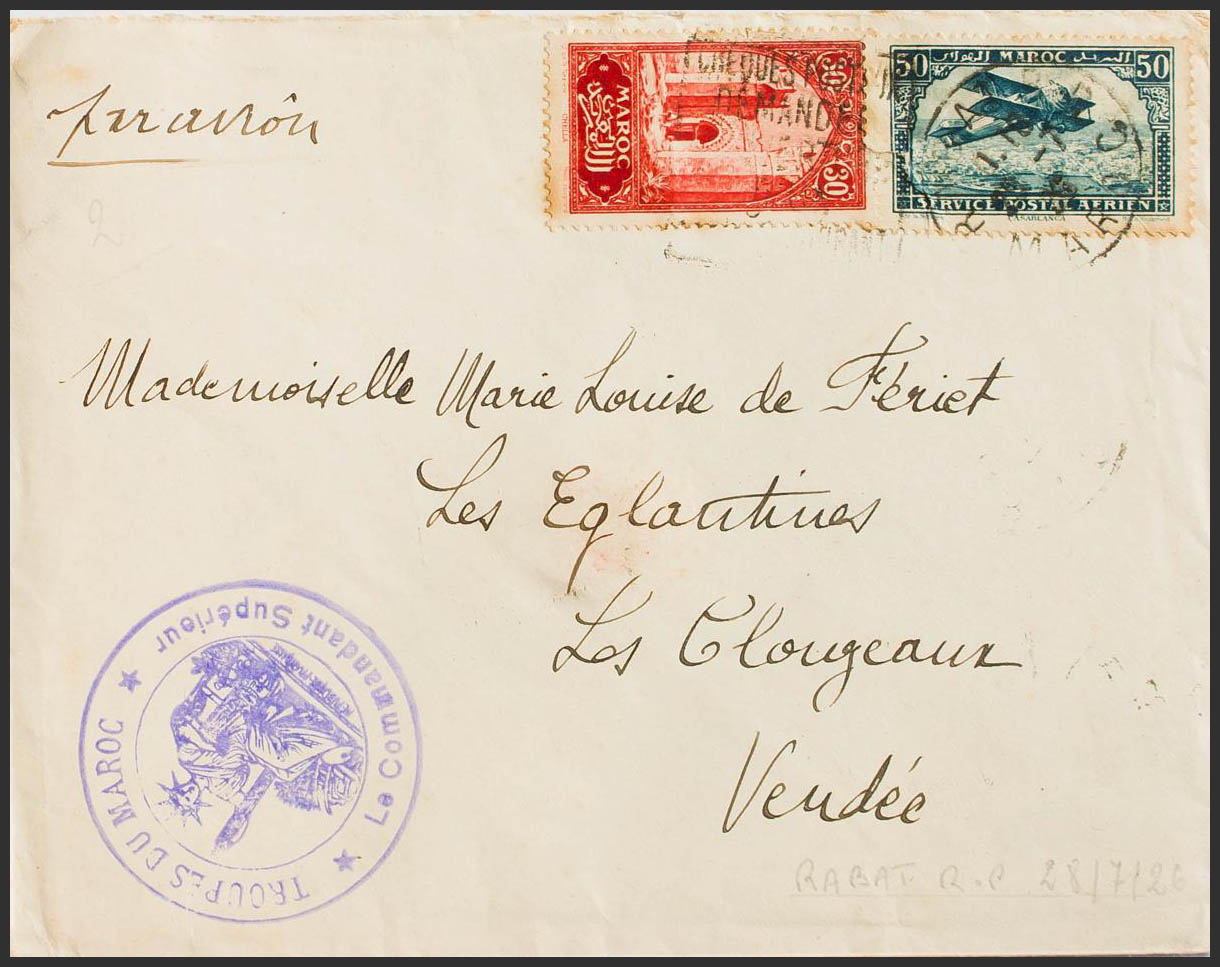 par avion
30 30
MAROC
المغرب
CHELLA
50 MAROC البريد الهوائي 50
SERVICE POSTAL AERIEN
CASABLANCA
CHEQUES POSTAUX
DEMANDEZ
RABAT R.P.
MAROC
2
Mademoiselle Marie Louise de Fériet
Les Eglantines
Les Clouzeaux
Vendée
TROUPES DU MAROC ★ Le Commandant Supérieur ★
RABAT R.P 28/7/26